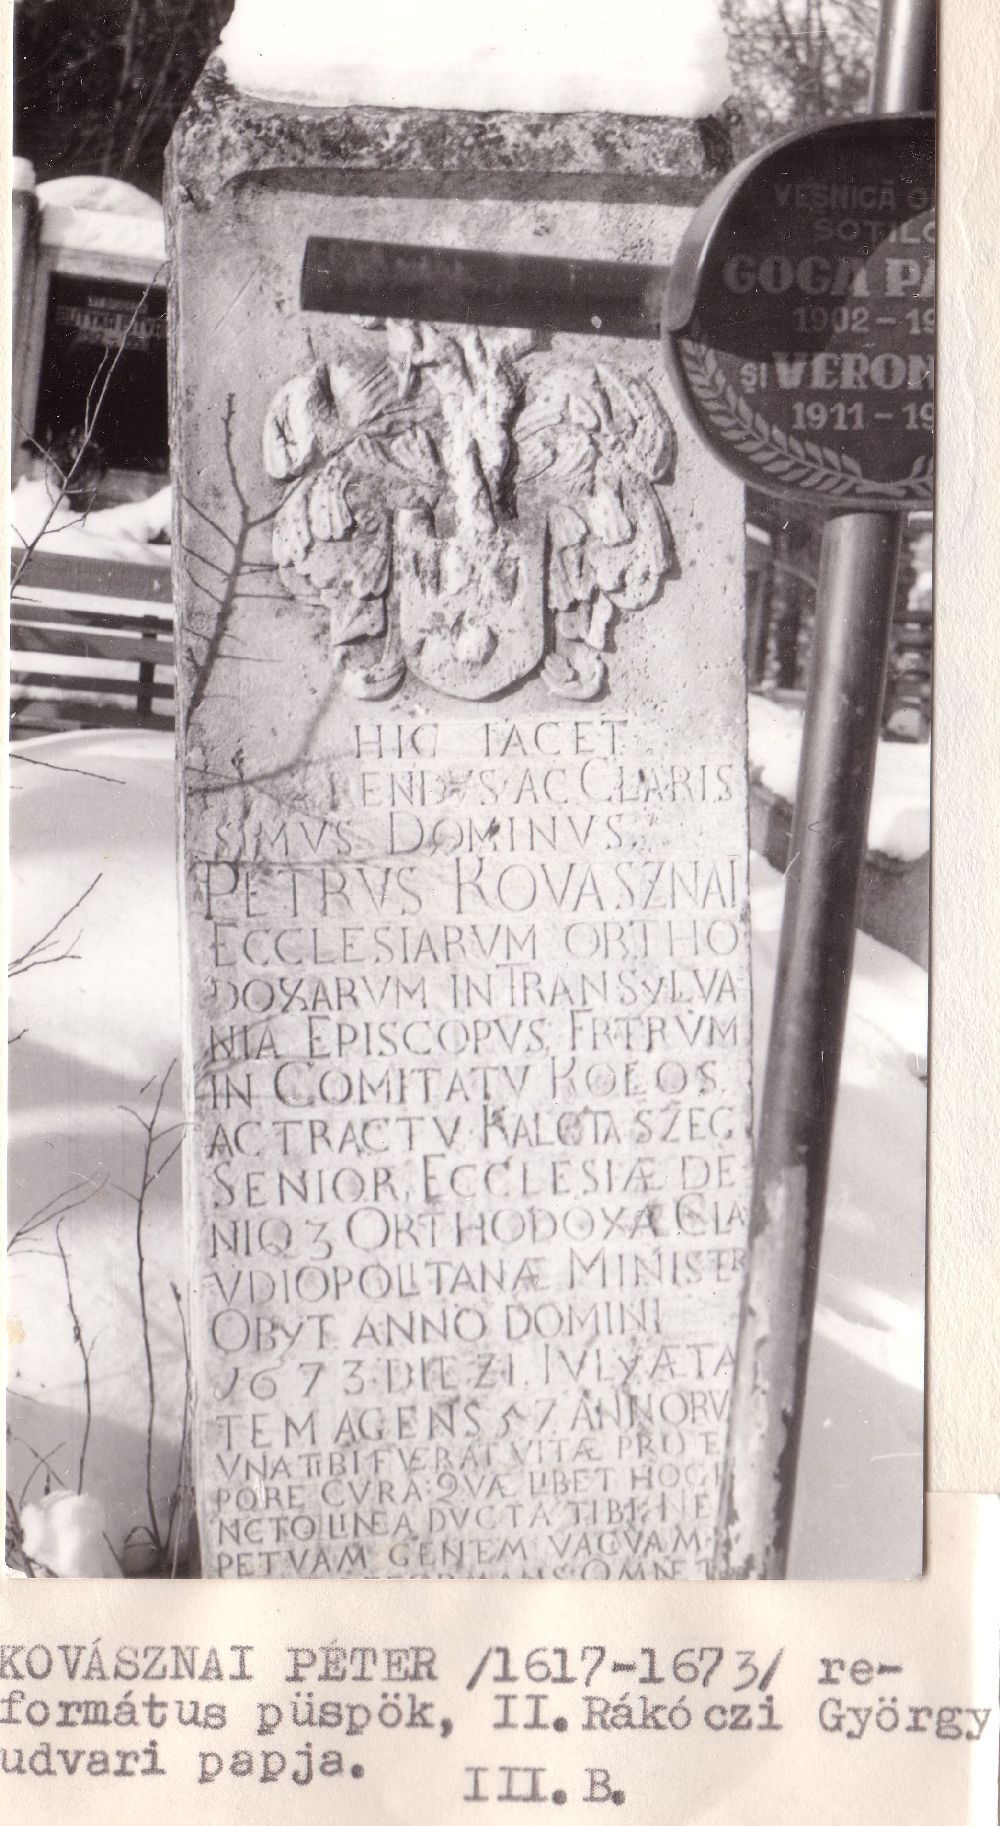 VEȘNICĂ
SOȚILO
GOGA
1902-19
ȘI VERON
1911-19
HIC IACET
ENDVS AC CLARIS
SIMVS DOMINVS
PETRVS KOVASZNAI
ECCLESIARVM ORTHO
DOXARVM IN TRANSYLVA
NIA EPISCOPVS, FRTRVM
IN COMITATV KOLOS
AC TRACTV KALOTA SZEG
SENIOR, ECCLESIÆ DE
NIQ3 ORTHODOXÆ CLA
VDIOPOLITANÆ MINISTER
OBYT ANNO DOMINI
1673 DIE 21. IVLY ÆTA
TEM AGENS 57. ANNORV
VNA TIBI FVERAT VITÆ PRO TE
PORE CVRA: QVÆ LIBET HOC
NCTO LINEA DVCTA TIBI NE
PETVAM GENTEM VACVAM
OMNE
KOVÁSZNAI PÉTER /1617-1673/ re-
formátus püspök, II. Rákóczi György
udvari papja.
III. B.